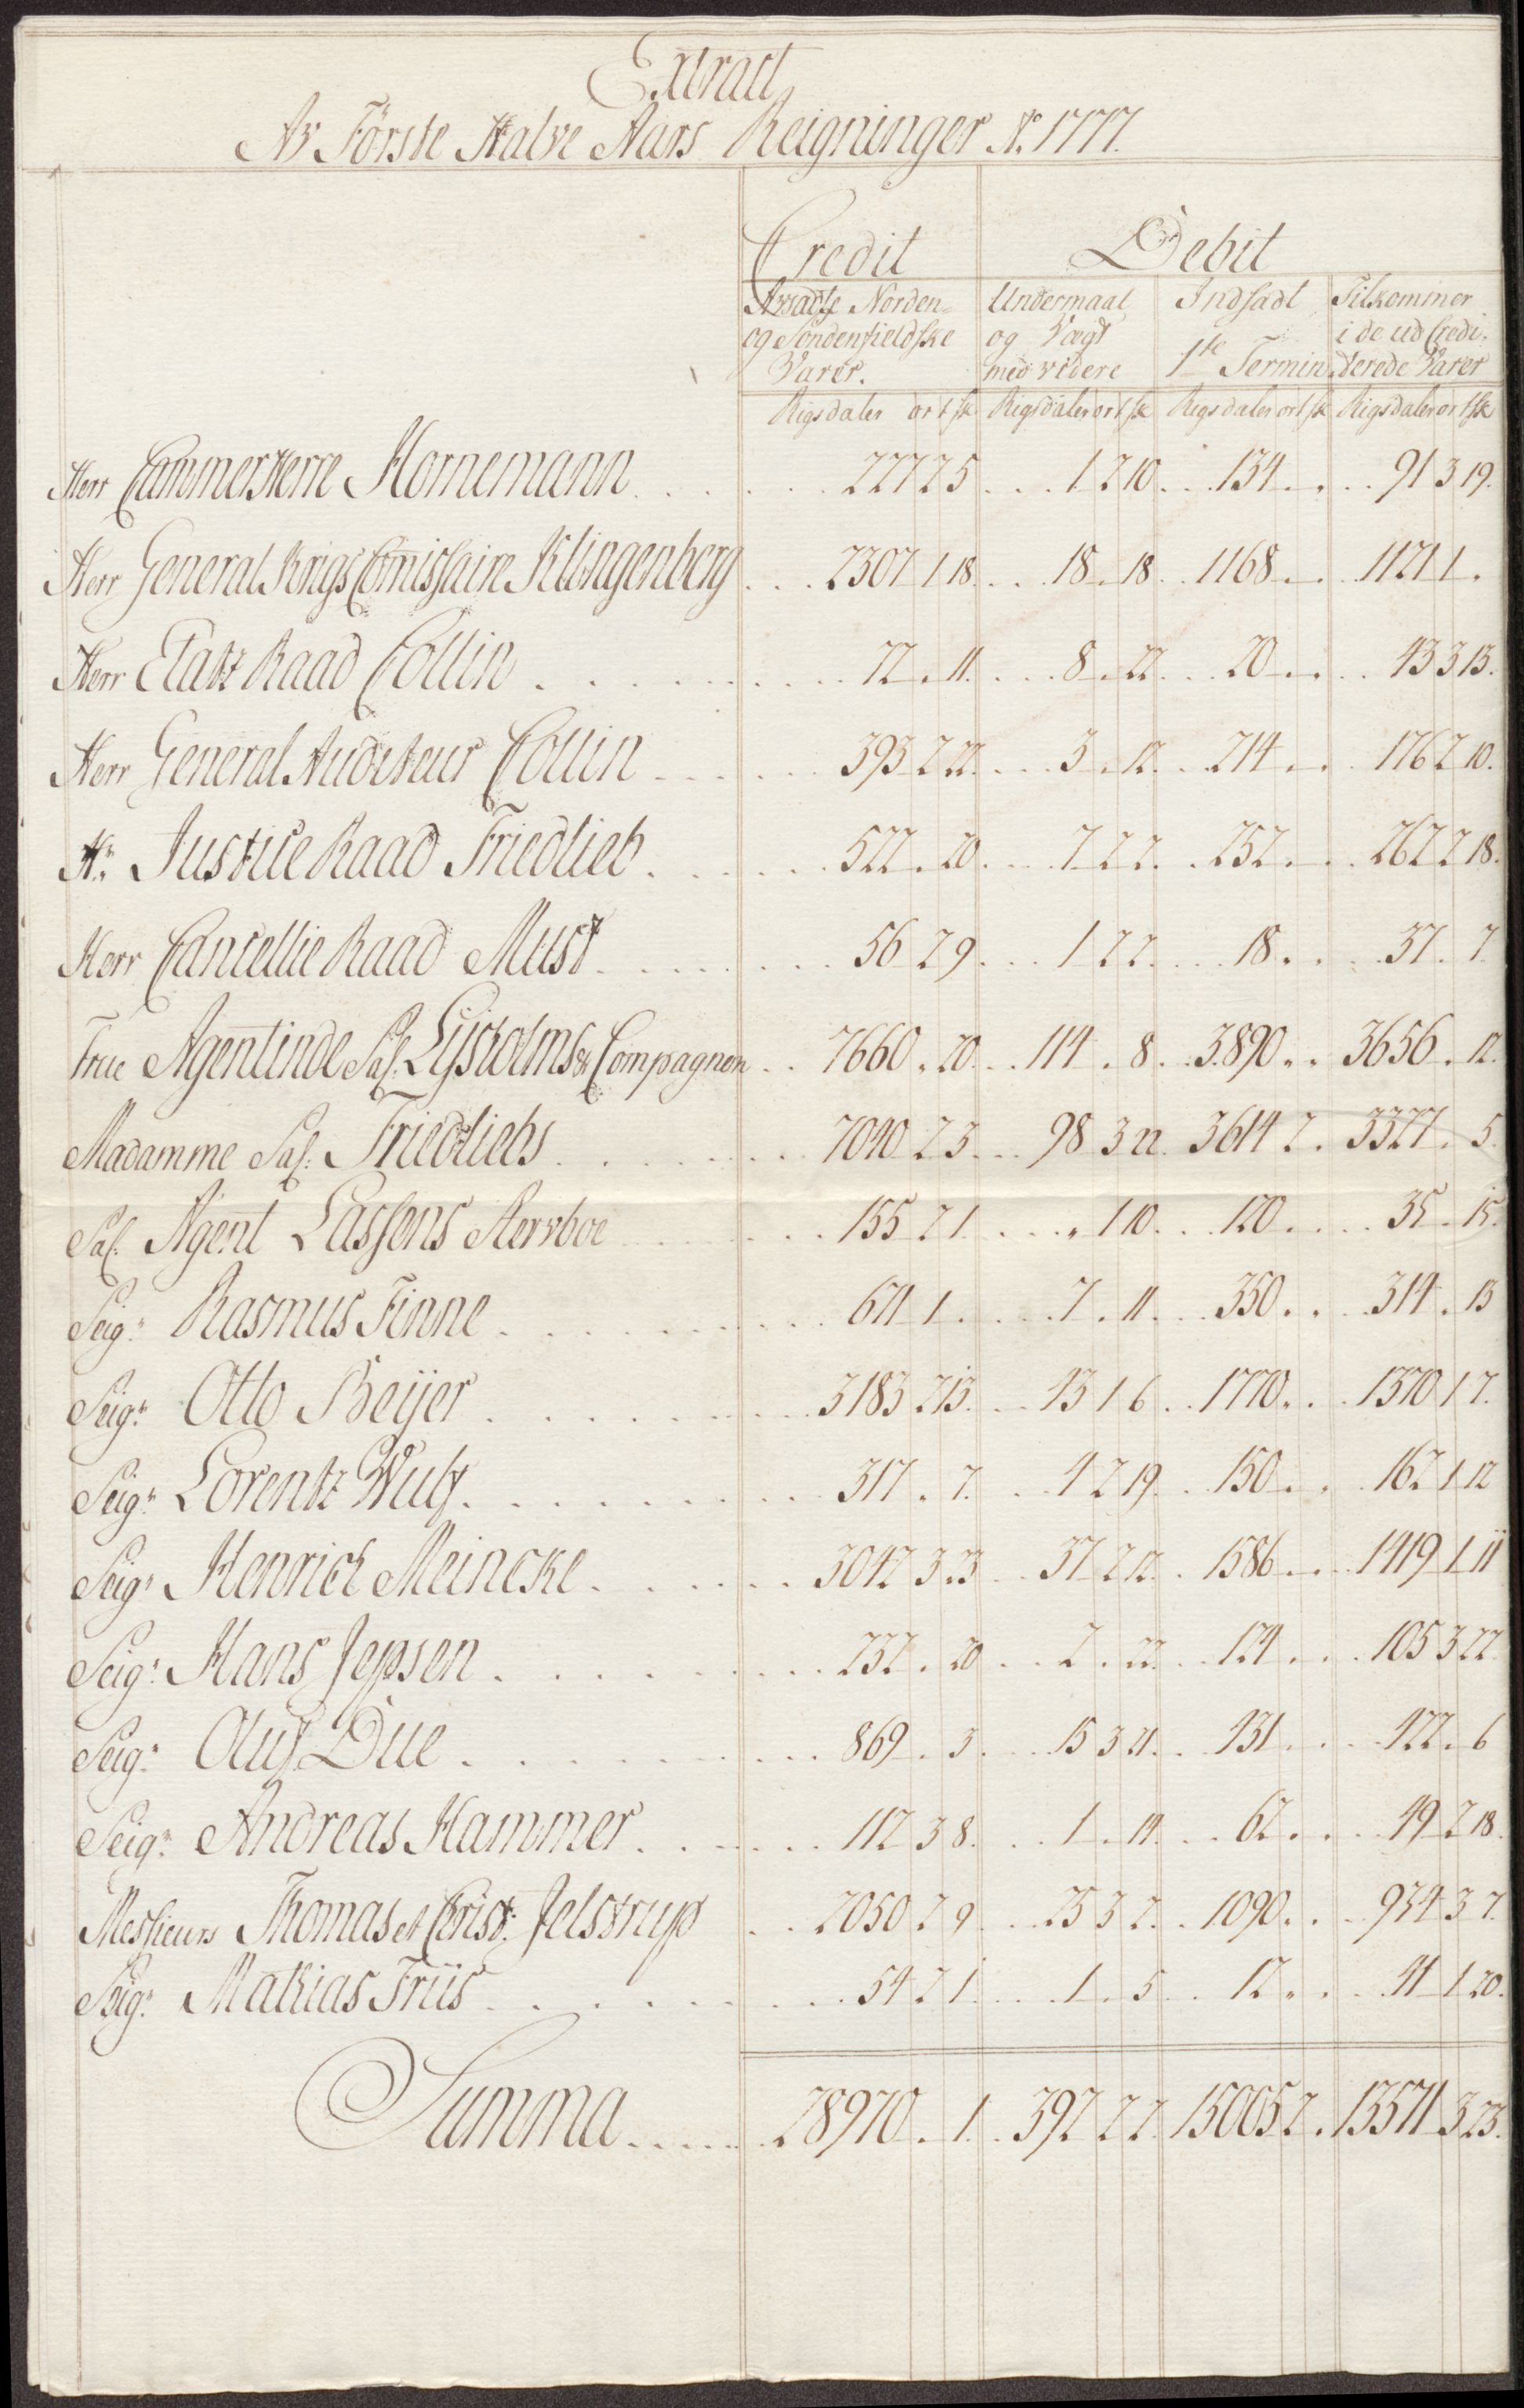 Extract
Av Förste Halve Aars Reigninger Ao. 1777.
Credit Debit
Avsadte Norden= Undermaal Indsadt Tilkommer
og Söndenfieldske og Vægt i de ud Credi.
Varer. med videre 1ste Termin. terede Varer
Rigsdaler ort sk Rigsdaler ort sk Rigsdaler ort sk Rigsdaler ort sk
Herr Cammerherre Hornemann 227 2 5 1 2 10 134 . . 91 3 19.
Herr General Krigs Comissaire Klingenberg 2307 1 18 18 . 18 1168 . . 1121 1 .
Herr Etatz Raad Collin 72 . 11 8 . 22 20 . . 43 3 13.
Herr General Auditeur Collin 393 2 22 3 . 12 214 . . 176 2 10.
Hr. Justice Raad Friedlieb 522 . 20 7 2 2 252 . . 262 2 18.
Herr Cancellie Raad Must 56 2 9 1 2 2 18 . . 37 . 7
Frue Agentinde Sal. Lysholms & Compagnon 7660 . 20 114 . 8 3890 . . 3656 . 12.
Madamme Sal: Friedliebs 7040 2 3 98 3 22 3614 2 . 3327 . 5.
Sal. Agent Lassens Stervboe 155 2 1 . 1 10 120 . . 35 . 15.
Seigr. Rasmus Finne 671 1 . 7 . 11 350 . . 314 . 13
Seigr. Otto Beÿer 3183 2 13 43 1 6 1770 . . 1370 1 7.
Seigr. Lorentz Wulf 317 . 7 4 2 19 150 . . 162 1 12
Seigr. Henrich Meincke 3042 3 23 37 2 12 1586 . . 1419 1 11
Seigr. Hans Jepsen 232 . 20 2 . 22 124 . . 105 3 22
Seigr. Oluf Due 869 . 3 15 3 21 431 . . 422 . 6
Seigr. Andreas Hammer 112 3 8 1 . 14 62 . . 49 2 18.
Messieurs Thomas et Christ: Jelstrup 2050 2 9 25 3 2 1090 . . 934 3 7.
Seigr. Mathias Friis 54 2 1 1 . 5 12 . . 41 1 20.
Summa 28970 . 1 392 2 2 15005 2 . 13571 3 23.